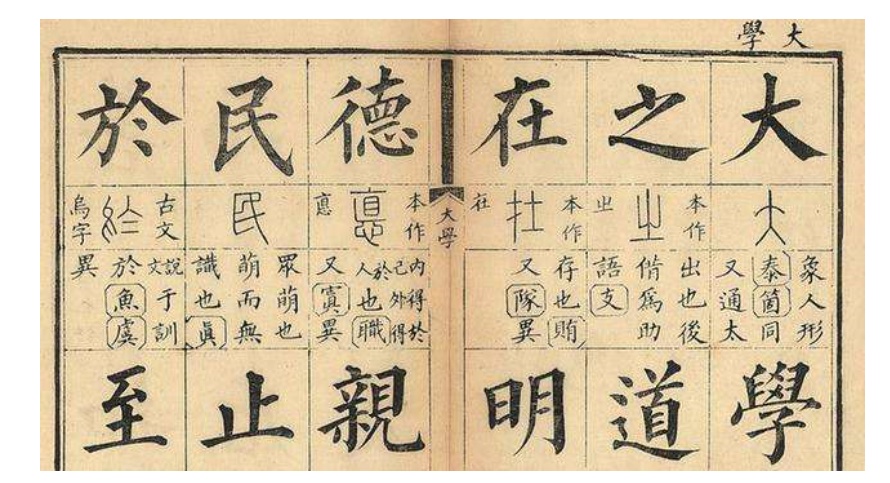 大學
大
大
象人形
泰箇同
又通太
學
之
本作
㞢
出也後
借爲助
語支
道
在
本作
在
存也賄
又隊異
明
大學
德
本作
悳
内得於
己外得
於人也職
又寘異
親
民
民
眾萌也
萌而無
識也眞
止
於
古文
烏字
說文于訓
於魚虞
異
至